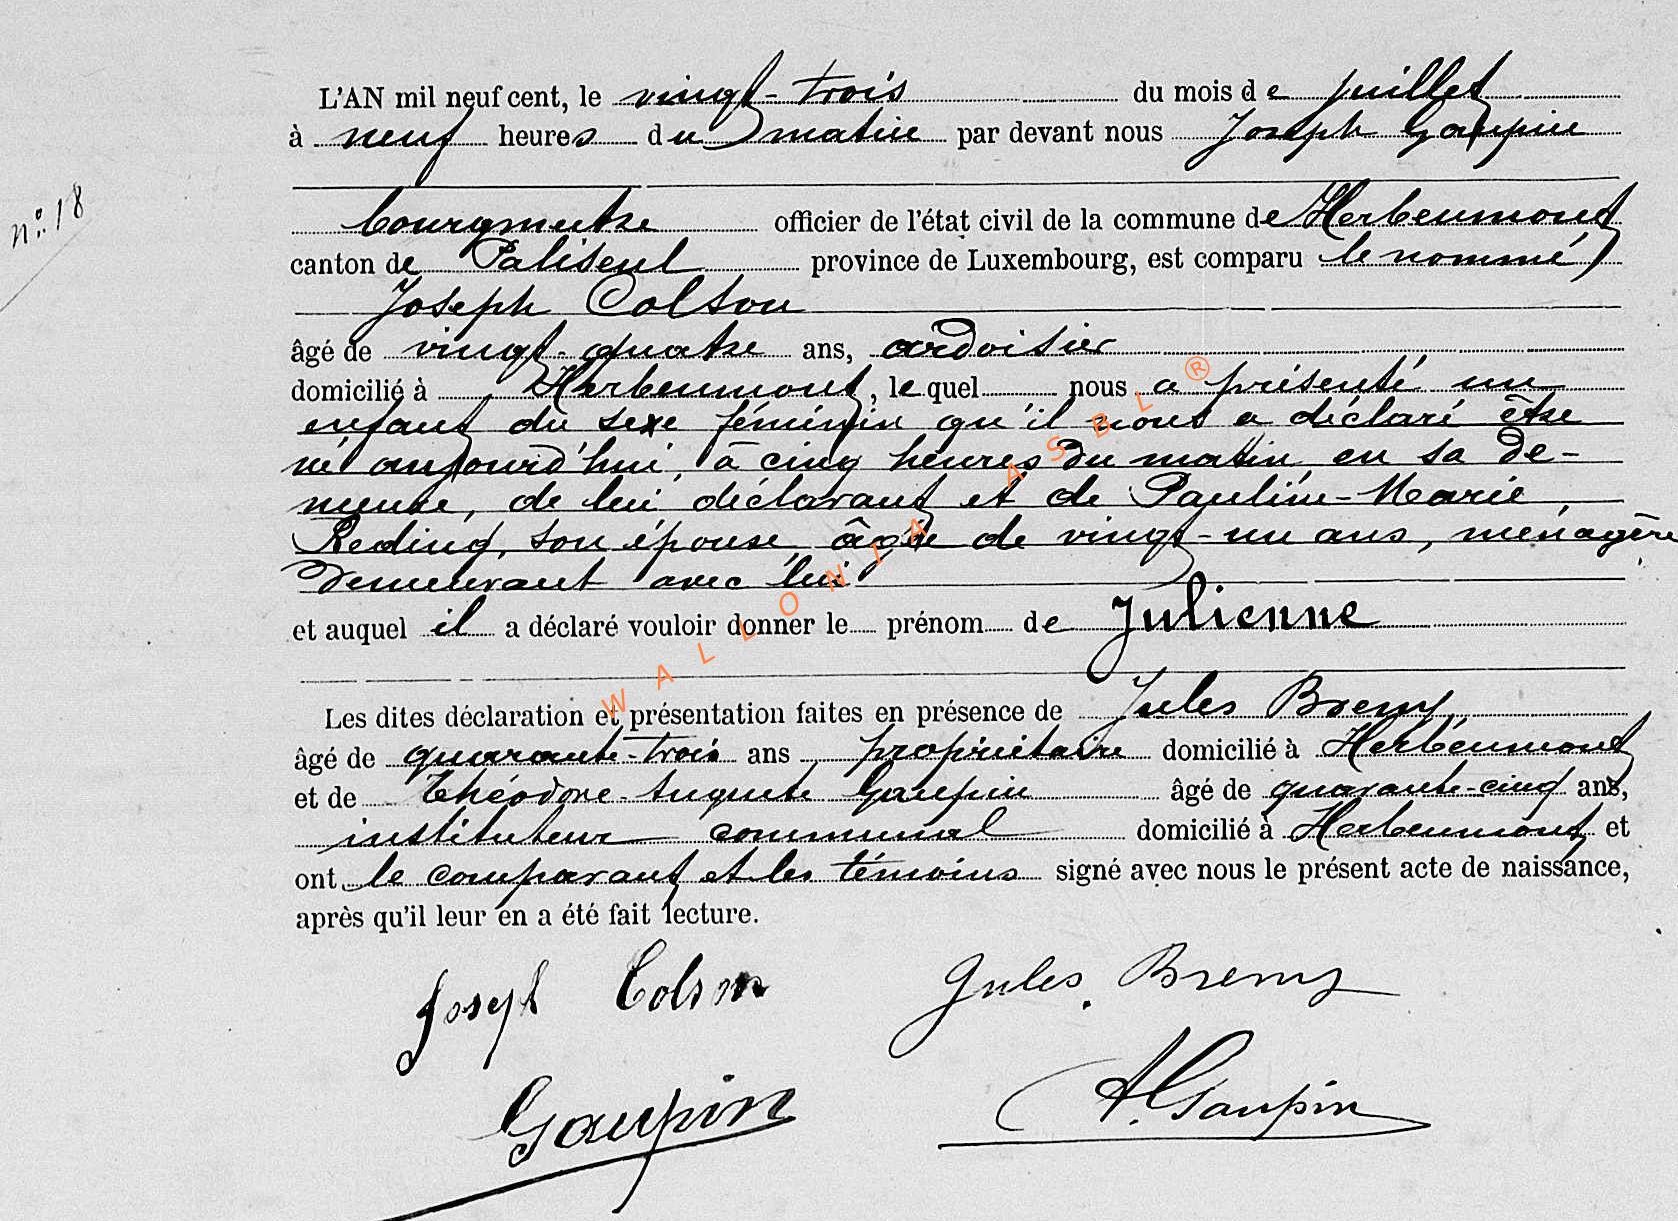 n° 18
L'AN mil neuf cent, le vingt-trois du mois de juillet
à neuf heures du matin par devant nous Joseph Gaupin
bourgmestre officier de l'état civil de la commune de Herbeumont
canton de Paliseul province de Luxembourg, est comparu le nommé
Joseph Colson
âgé de vingt-quatre ans, ardoisier
domicilié à Herbeumont, lequel nous a présenté un
enfant du sexe féminin qu'il nous a déclaré être
né aujourd'hui, à cinq heures du matin, en sa de-
meure, de lui déclarant et de Pauline-Marie
Reding, son épouse, âgée de vingt-un ans, ménagère
demeurant avec lui
et auquel il a déclaré vouloir donner le prénom de Julienne
Les dites déclaration et présentation faites en présence de Jules Bremy
âgé de quarante-trois ans propriétaire domicilié à Herbeumont
et de Théodore-Auguste Gaupin âgé de quarante-cinq ans,
instituteur communal domicilié à Herbeumont et
ont le comparant et les témoins signé avec nous le présent acte de naissance,
après qu'il leur en a été fait lecture.
Joseph Colson Jules Bremy
Gaupin A. Gaupin
WALLONIA ASBL ®